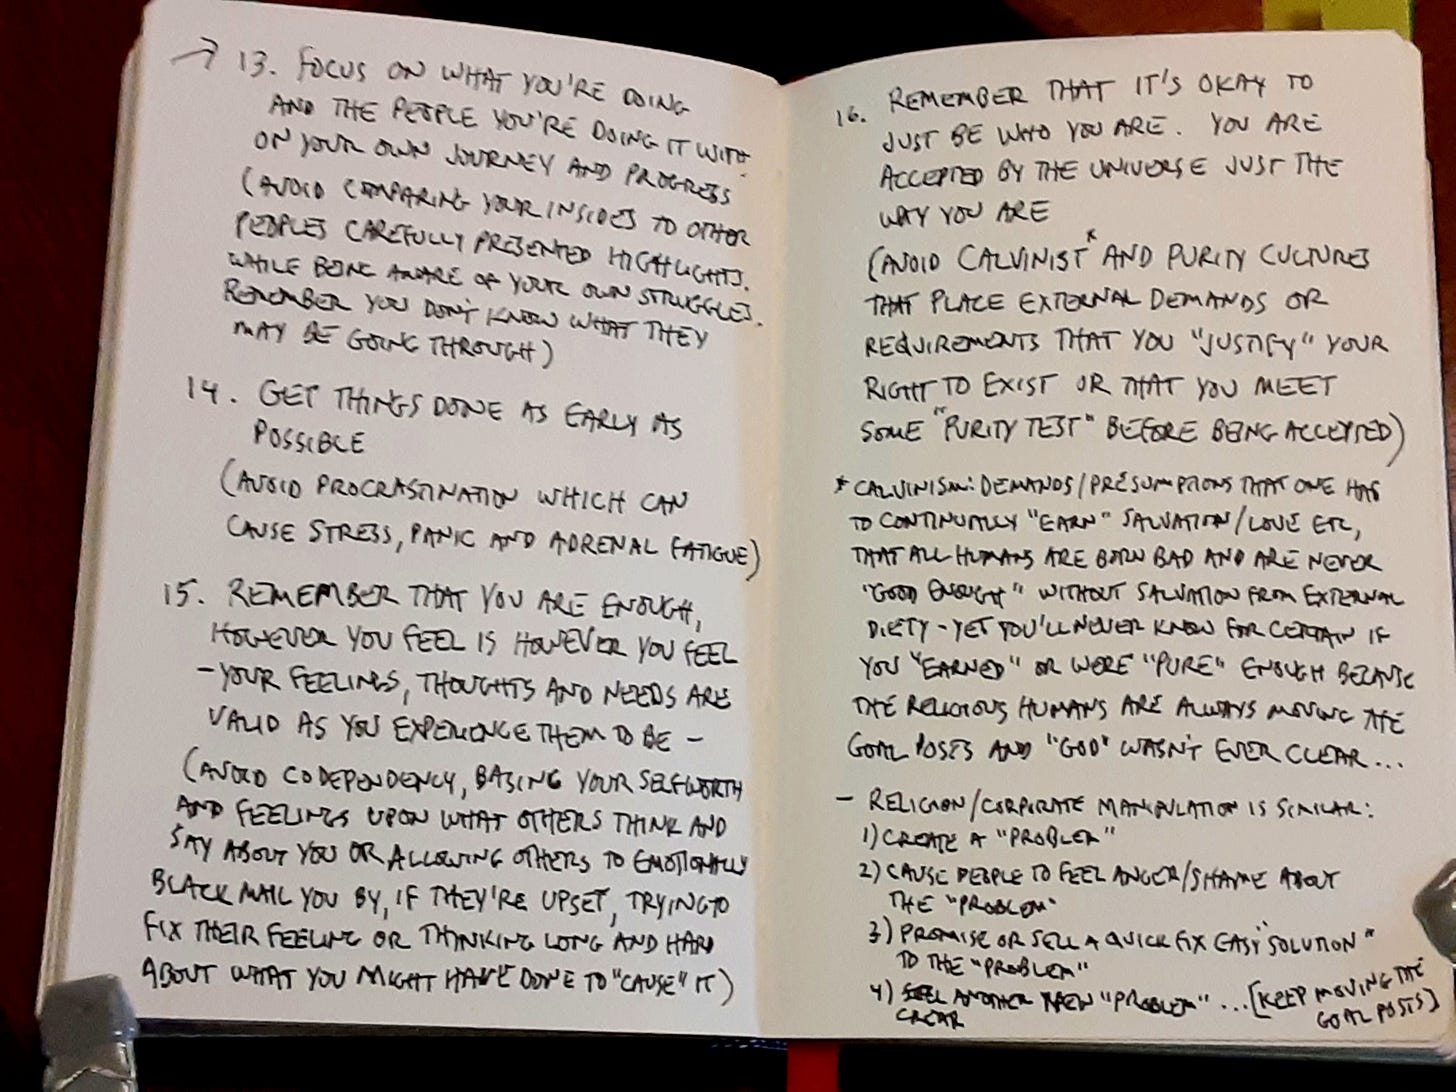 → 13. FOCUS ON WHAT YOU'RE DOING
AND THE PEOPLE YOU'RE DOING IT WITH
ON YOUR OWN JOURNEY AND PROGRESS
(AVOID COMPARING YOUR INSIDES TO OTHER
PEOPLES CAREFULLY PRESENTED HIGHLIGHTS.
WHILE BEING AWARE OF YOUR OWN STRUGGLES.
REMEMBER YOU DON'T KNOW WHAT THEY
MAY BE GOING THROUGH)
14. GET THINGS DONE AS EARLY AS
POSSIBLE
(AVOID PROCRASTINATION WHICH CAN
CAUSE STRESS, PANIC AND ADRENAL FATIGUE)
15. REMEMBER THAT YOU ARE ENOUGH,
HOWEVER YOU FEEL IS HOWEVER YOU FEEL
- YOUR FEELINGS, THOUGHTS AND NEEDS ARE
VALID AS YOU EXPERIENCE THEM TO BE -
(AVOID CODEPENDENCY, BASING YOUR SELFWORTH
AND FEELINGS UPON WHAT OTHERS THINK AND
SAY ABOUT YOU OR ALLOWING OTHERS TO EMOTIONALLY
BLACK MAIL YOU BY, IF THEY'RE UPSET, TRYING TO
FIX THEIR FEELING OR THINKING LONG AND HARD
ABOUT WHAT YOU MIGHT HAVE DONE TO "CAUSE" IT)
16. REMEMBER THAT IT'S OKAY TO
JUST BE WHO YOU ARE. YOU ARE
ACCEPTED BY THE UNIVERSE JUST THE
WAY YOU ARE
(AVOID CALVINIST* AND PURITY CULTURES
THAT PLACE EXTERNAL DEMANDS OR
REQUIREMENTS THAT YOU "JUSTIFY" YOUR
RIGHT TO EXIST OR THAT YOU MEET
SOME "PURITY TEST" BEFORE BEING ACCEPTED)
* CALVINISM: DEMANDS/PRESUMPTIONS THAT ONE HAS
TO CONTINUALLY "EARN" SALVATION/LOVE ETC,
THAT ALL HUMANS ARE BORN BAD AND ARE NEVER
"GOOD ENOUGH" WITHOUT SALVATION FROM EXTERNAL
DIETY - YET YOU'LL NEVER KNOW FOR CERTAIN IF
YOU "EARNED" OR WERE "PURE" ENOUGH BECAUSE
THE RELIGIOUS HUMANS ARE ALWAYS MOVING THE
GOAL POSES AND "GOD" WASN'T EVER CLEAR...
- RELIGION/CORPORATE MANIPULATION IS SIMILAR:
1) CREATE A "PROBLEM"
2) CAUSE PEOPLE TO FEEL ANGER/SHAME ABOUT
THE "PROBLEM"
3) PROMISE OR SELL A QUICK FIX EASY "SOLUTION"
TO THE "PROBLEM"
4) ANOTHER NEW "PROBLEM" ... [KEEP MOVING THE
GOAL POSTS]